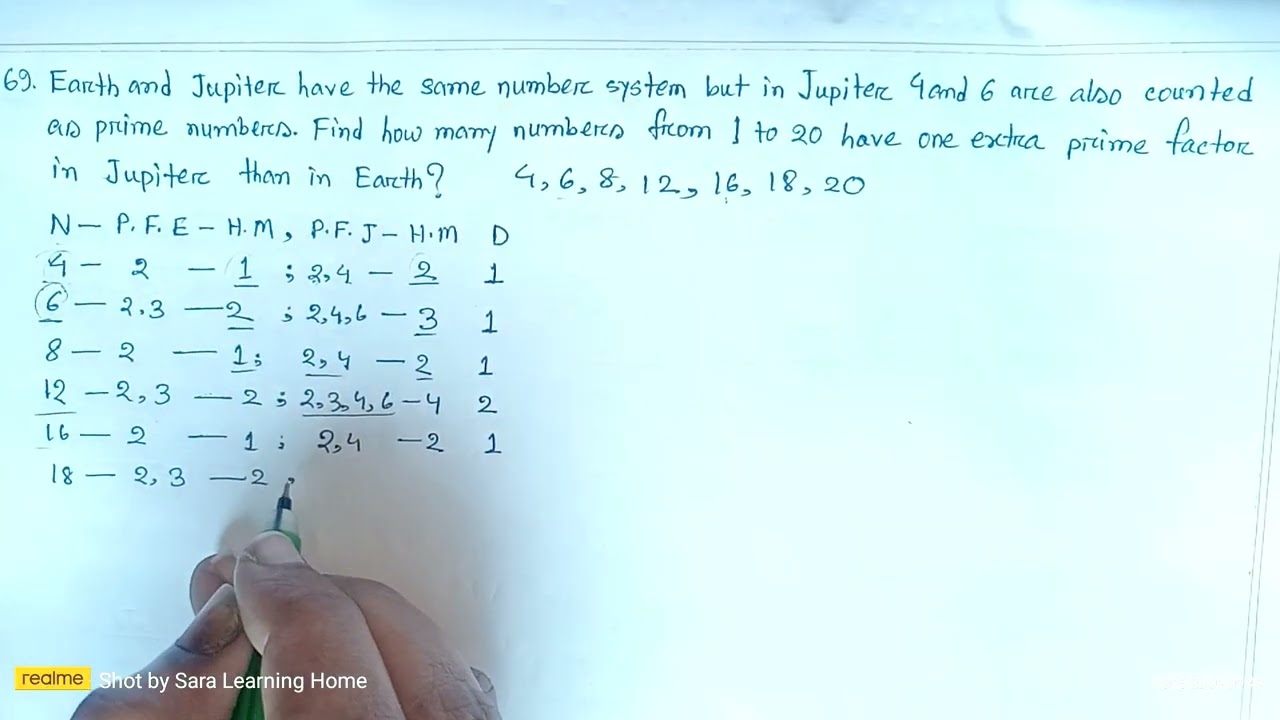 69. Earth and Jupiter have the same number system but in Jupiter 4 and 6 are also counted
as prime numbers. Find how many numbers from 1 to 20 have one extra prime factor
in Jupiter than in Earth? 4, 6, 8, 12, 16, 18, 20
N — P. F. E — H. M, P. F. J — H. M D
4 — 2 — 1 ; 2, 4 — 2 1
6 — 2, 3 — 2 ; 2, 4, 6 — 3 1
8 — 2 — 1 ; 2, 4 — 2 1
12 — 2, 3 — 2 ; 2, 3, 4, 6 — 4 2
16 — 2 — 1 ; 2, 4 — 2 1
18 — 2, 3 — 2
realme Shot by Sara Learning Home